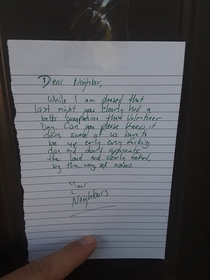 Dear Neighbor,
While I am pleased that
last night you clearly had a
better companion than Valentines
Day. Can you please keep it
down some of us have to
be up early every fucking
day and don't appreciate
the loud and clearly
by the way sex noises.
Your
Neighbors